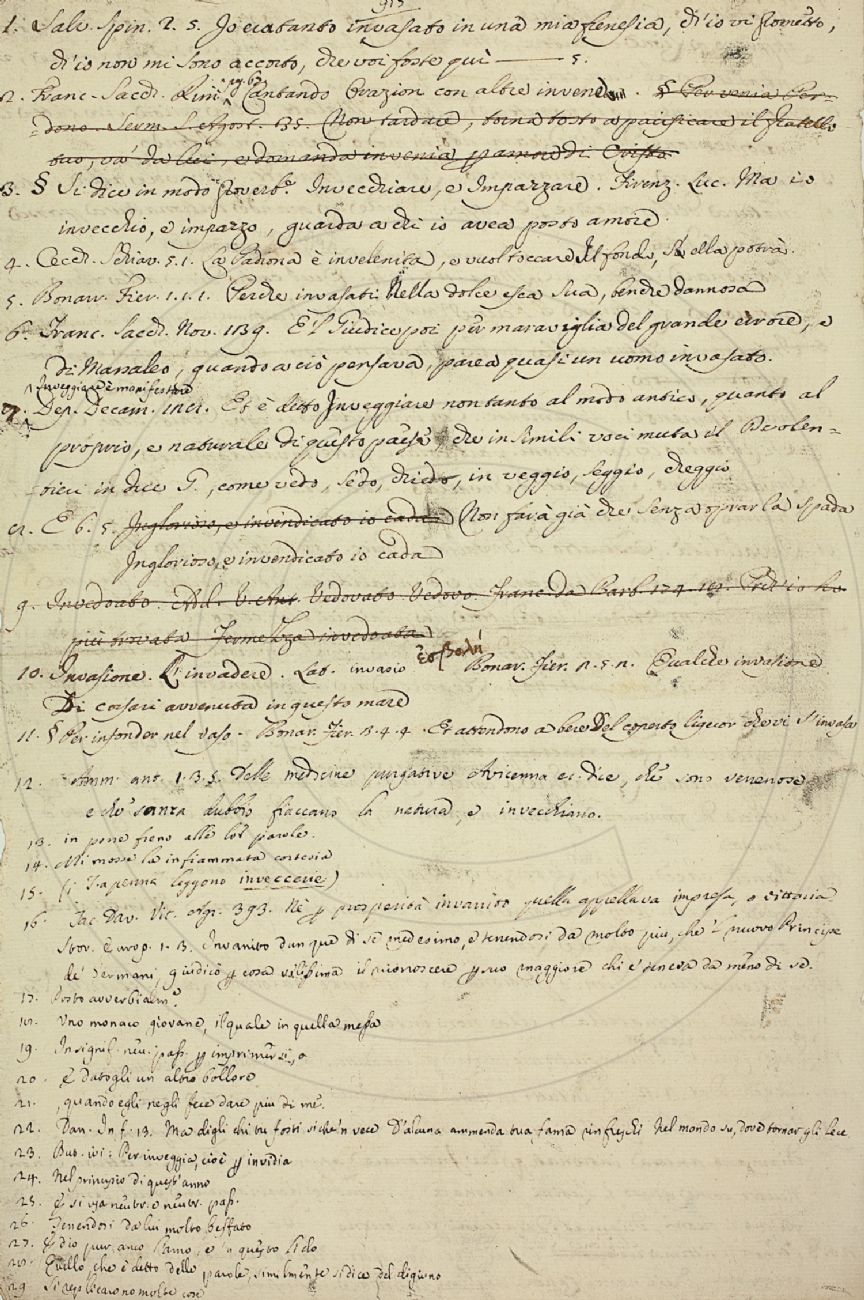 915
1. Salv. Spin. 2. 5. Io era tanto invasato in una mia frenesia, ch'io vi prometto,
ch'io non mi sono accorto, che voi foste qui —— 5.
2. Franc. Sacch. Rim. pag. 67 Cantando Orazion con altre invenie. § Per venia Per-
dono. Serm. S. Agost. 35. Non tardare, torna tosto a pacificare il fratello
tuo, va' da lui, e domanda invenia p amore di Cristo.
3. § Si dice in modo proverb.e Invecchiare, e Impazzare. Firenz. Luc. Ma io
invecchio, e impazzo, guarda a chi io avea posto amore.
4. Cecch. Schiav. 5. 1. La Padrona è invelenita, e vuol toccare il fondo, s'ella potrà.
5. Bonarr. Fier. 1. 1. 1. Perchè invasati Nella dolce esca sua, benchè dannosa
6. Franc. Sacch. Nov. 139. E 'l Giudice poi per maraviglia del grande errore, e
di Massaleo, quando a ciò pensava, parea quasi un uomo invasato.
Inveggiare è manifestare
7. Dep. Decam. 121. Et è detto Inveggiare non tanto al modo antico, quanto al
proprio, e naturale di questo paese, che in simili voci muta il D volen-
tieri in due G, come vedo, sedo, chiedo, in veggio, seggio, cheggio
8. E 6. 5. Inglorioso, e invendicato io cada Non farà già che senza oprar la spada
Inglorioso, e invendicato io cada
9. Invedovato. Add. V. Ant. Vedovato Vedovo. Franc. da Barb. 174. 18. Perch'io ho
più trovata Fermezza invedovata
10. Invasione. L'invadere. Lat. invasio εἰσβολή Bonar. Fier. 2. 5. 2. Qualche invasione
Di corsari avvenuta in questo mare
11. § Per infonder nel vaso. Bonar. Fier. 3. 4. 4. Et attendono a bere Del coperto liquor che vi s'invasa
12. Amm. ant. 1. 3. 5. Delle medicine purgative Avicenna ci dice, che sono venenose
e che sanza dubbio fiaccano la natura, e invecchiano.
13. in pone fieno alle lor parole.
14. Mi mosse la infiammata cortesia
15. (i Trapenna leggono invecceve)
16. Tac. Dav. Vit. Agr. 393. Nè p prosperità invanito quella appellava impresa, o vittoria
Stor. Europ. 1. 3. Invanito dunque di sè medesimo, e tenendosi da molto più, che 'l nuovo Principe
de' Germani, giudicò p cosa vilissima il riconoscere p suo maggiore chi e' teneva da meno di se.
17. Posto avverbialm.e
18. Uno monaco giovane, il quale in quella messa
19. In signif. neu. pass. p imprimersi, o
20. E datogli un altro bollore
21. , quando egli negli fece dare più di me.
22. Dan. Inf. 13. Ma digli chi tu fosti sicchè 'n vece D'alcuna ammenda tua fama rinfreschi Nel mondo su, dove tornar gli lece
23. But. ivi: Per inveggia, cioè p invidia
24. Nel principio di quest'anno
25. E si usa neutr. e neutr. pass.
26. Tenendosi da lui molto beffato
27. E dio pur anco l'amo, e 'n questo lido
28. Quello, che è detto delle parole, similmente si dice del digiuno
29. Si replicarono molte cose